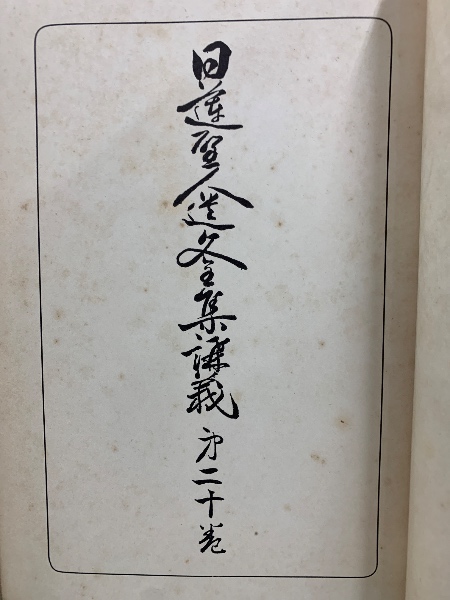 日蓮聖人遺文全集講義 第二十巻